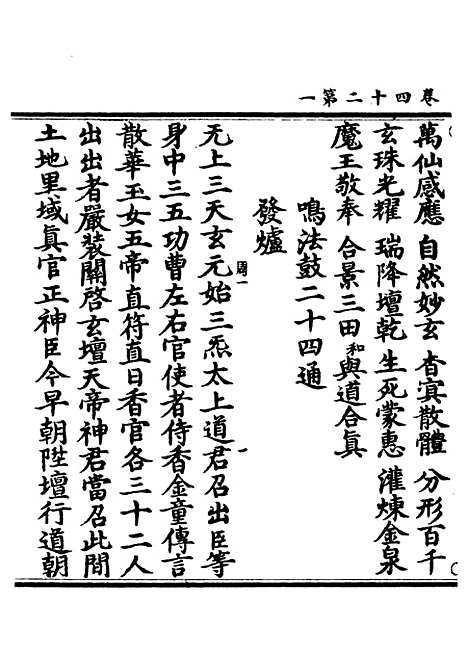 卷四十二第一
萬仙感應 自然妙玄 杳冥散體 分形百千
玄珠光耀 瑞降壇乾 生死蒙惠 灌煉金泉
魔王敬奉 合景三田和與道合眞
鳴法鼓二十四通
發爐
无上三天玄元始三炁太上道君召出臣等
身中三五功曹左右官使者侍香金童傳言
散華玉女五帝直符直日香官各三十二人
出出者嚴装關啓玄壇天帝神君當召此間
土地里域眞官正神臣今早朝陞壇行道朝
周一